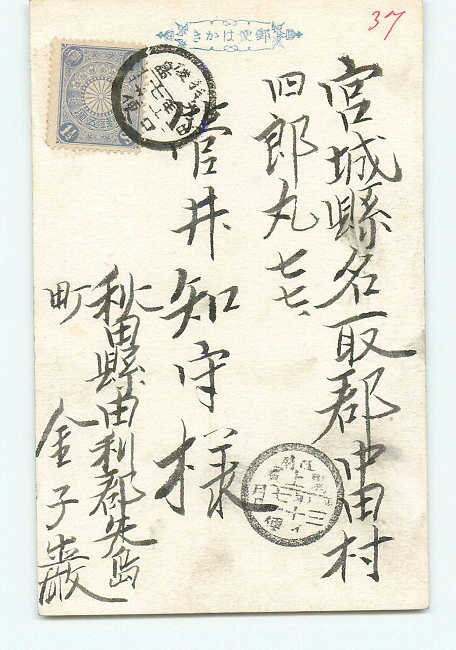 きかは便郵
37
宮城縣名取郡中田村
四郎丸七七、
菅井知守様
秋田縣由利郡矢島
町
金子巌